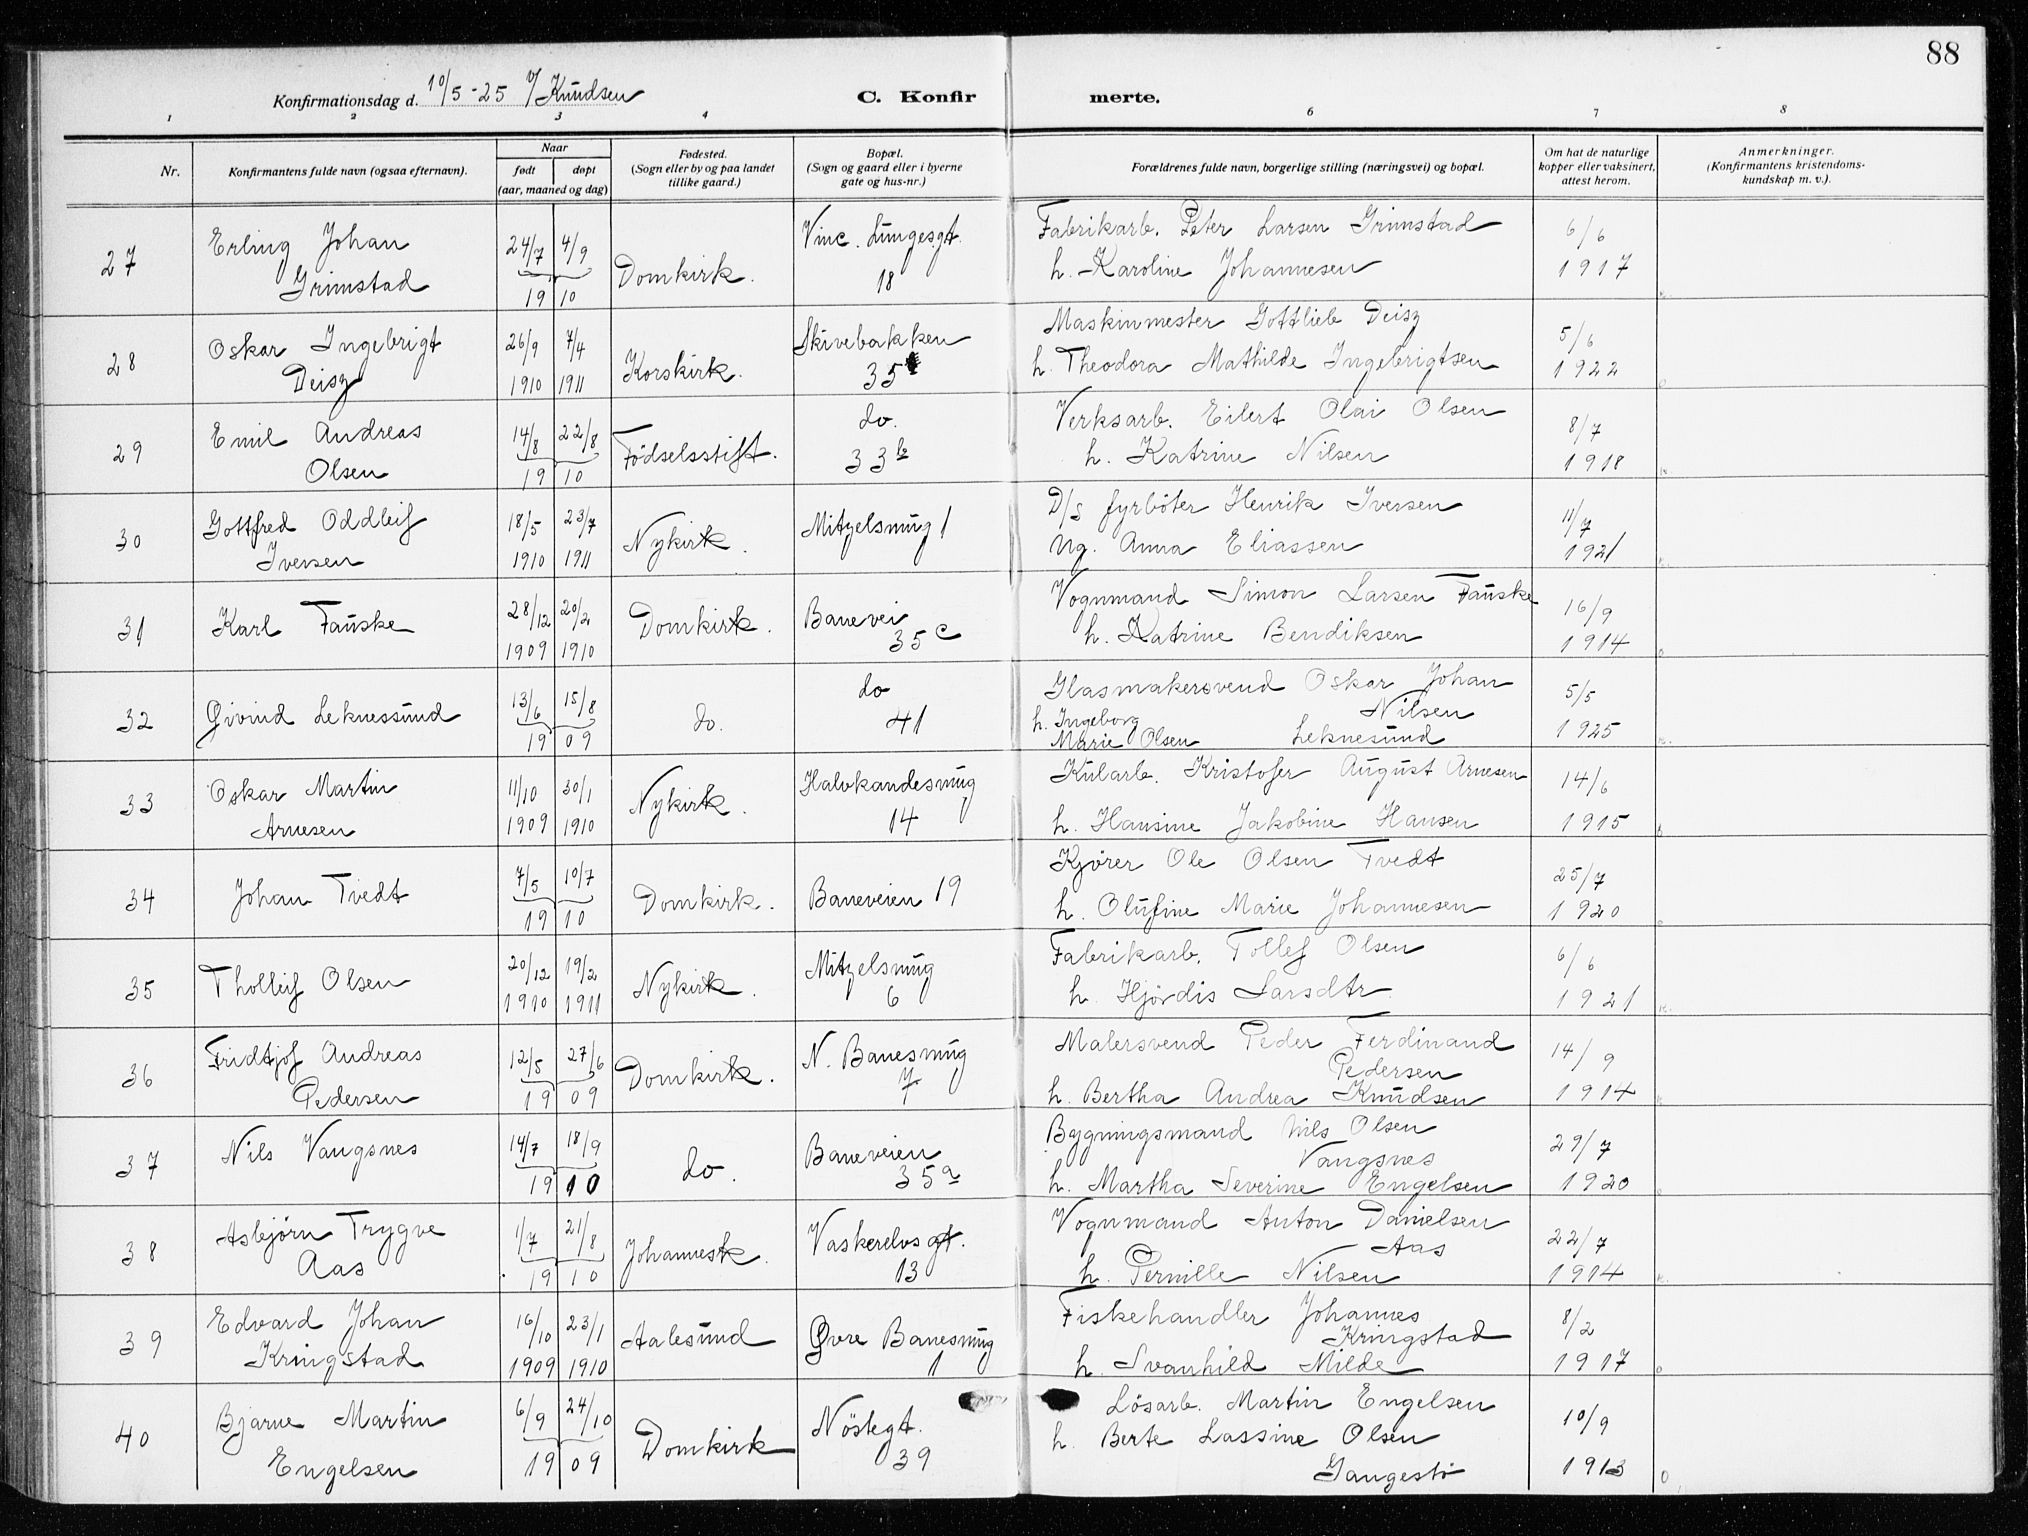 88
Konfirmationsdag d. 10/5-25 v/ Knudsen
C. Konfirmerte.
1 2 3 4 6 7 8
Nr.
Konfirmantens fulde navn (ogsaa efternavn).
Naar
født døpt
(aar, maaned og dag)
Fødested.
(Sogn eller by og paa landet
tillike gaard.)
Bopæl.
(Sogn og gaard eller i byerne
gate og hus-nr.)
Forældrenes fulde navn, borgerlige stilling (næringsvei) og bopæl.
Om hat de naturlige
kopper eller vaksinert,
attest herom.
Anmerkninger.
(Konfirmantens kristendoms-
kundskap m. v.).
27 Erling Johan 24/7 4/9 Domkirk. Vinc. Lungesgt. Fabrikarb. Peter Larsen Grimstad 6/6
Grimstad 19 10 18 h. Karoline Johannesen 1917
28 Oskar Ingebrigt 26/9 7/4 Korskirk. Skivebakken Maskinmester Gottlieb Deisz 5/6
Deisz 1910 1911 35 h. Theodora Mathilde Ingebrigtsen 1922
29 Emil Andreas 14/8 22/8 Fødselsstift. do. Verksarb. Eilert Olai Olsen 8/7
Olsen 19 10 33b h. Katrine Nilsen 1918
30 Gottfred Oddleif 18/5 23/7 Nykirk. Mitzelsmug 1 D/S fyrböter Henrik Iversen 11/7
Iversen 1910 1911 Ug. Anna Eliassen 1921
31 Karl Fauske 28/12 20/2 Domkirk. Banevei Vognmand Simon Larsen Fauske 16/9
1909 1910 35 c h. Katrine Bendiksen 1914
32 Øivind Leknessund 13/6 15/8 do. do Glasmakersvend Oskar Johan 5/5
Nilsen
19 09 41 h. Ingeborg
Marie Olsen Leknesund 1925
33 Oskar Martin 11/10 30/1 Nykirk. Halvkandesmug Kularb. Kristofer August Arnesen 14/6
Arnesen 1909 1910 14 h. Hansine Jakobine Hansen 1915
34 Johan Tvedt 7/5 10/7 Domkirk. Baneveien 19 Kjører Ole Olsen Tvedt 25/7
19 10 h. Olufine Marie Johannesen 1920
35 Tholleif Olsen 20/12 19/2 Nykirk. Mitzelsmug Fabrikarb. Tollef Olsen 6/6
1910 1911 6 h. Hjördis Larsdtr. 1921
36 Fridtjof Andreas 12/5 27/6 Domkirk. N. Banesmug Malersvend Peder Ferdinand 14/9
Pedersen
Pedersen 19 09 7 h. Bertha Andrea Knudsen 1914
37 Nils Vangsnes 14/7 18/9 do. Baneveien Bygningsmand Nils Olsen 29/7
Vangsnes
19 10 35a h. Martha Severine Engelsen 1920
38 Asbjørn Trygve 1/7 21/8 Johannesk. Vaskerelvsgt. Vognmand Anton Danielsen 22/7
Aas
Aas 19 10 13 h. Pernille Nilsen 1914
39 Edvard Johan 16/10 23/1 Aalesund Øvre Banesmug Fiskehandler Johannes 8/2
Kringstad
Kringstad 1909 1910 11 h. Svanhild Milde 1917
40 Bjarne Martin 6/9 24/10 Domkirk Nöstegt. Lösarb. Martin Engelsen 10/9
Engelsen 19 09 39 h. Berte Lassine Olsen
Gangestö 1913